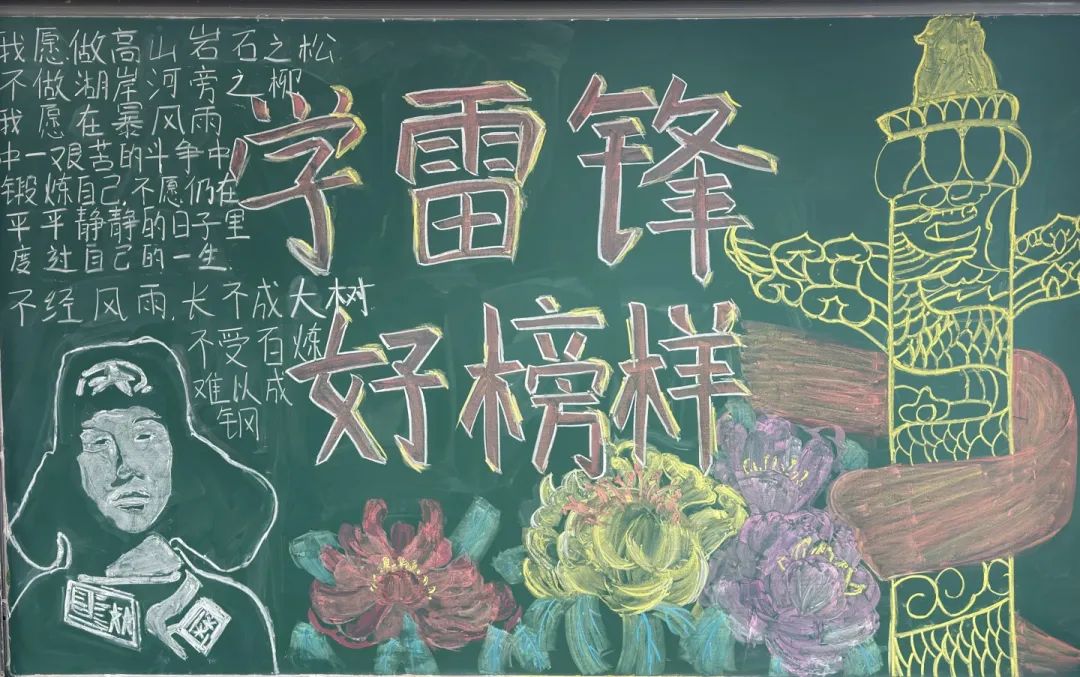 我愿做高山岩石之松
不做湖岸河旁之柳
我愿在暴风雨
中一艰苦的斗争中
锻炼自己,不愿仍在
平平静静的日子里
度过自己的一生.
不经风雨,长不成大树
不受百炼
难以成
钢
学雷锋
好榜样